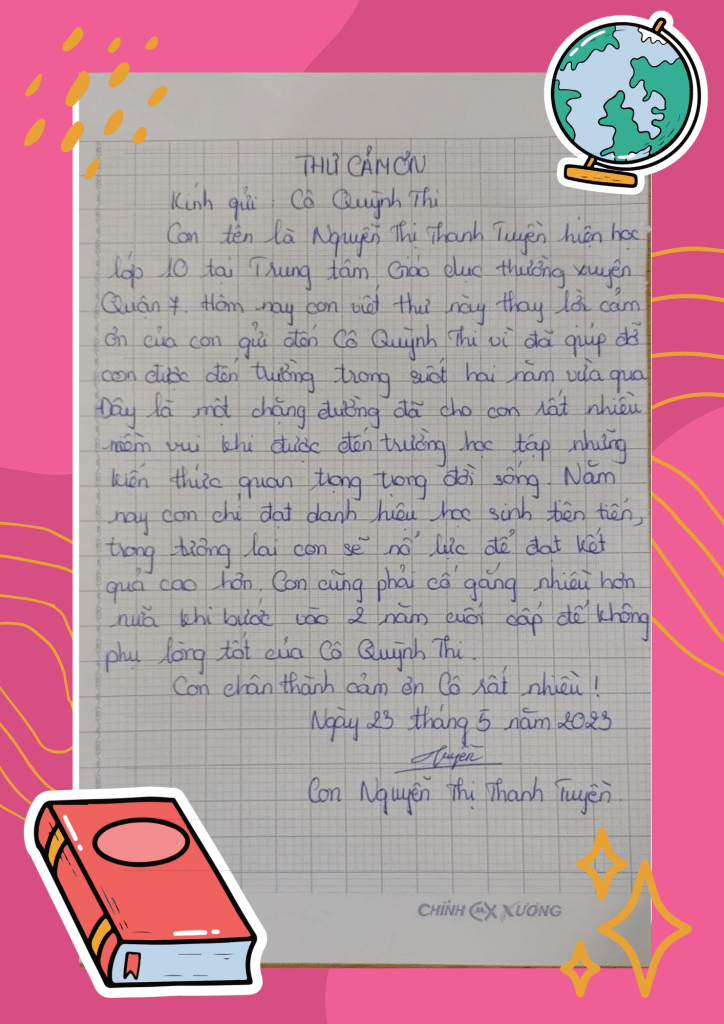 THƯ CẢM ƠN
Kính gửi : Cô Quỳnh Thi
Con tên là Nguyễn Thị Thanh Tuyền hiện học
lớp 10 tại Trung tâm Giáo dục thường xuyên
Quận 7. Hôm nay con viết thư này thay lời cảm
ơn của con gửi đến Cô Quỳnh Thi vì đã giúp đỡ
con được đến trường trong suốt hai năm vừa qua
Đây là một chặng đường đã cho con rất nhiều
niềm vui khi được đến trường học tập những
kiến thức quan trọng trong đời sống. Năm
nay con chỉ đạt danh hiệu học sinh tiên tiến,
trong tương lai con sẽ nổ lực để đạt kết
quả cao hơn. Con cũng phải cố gắng nhiều hơn
nữa khi bước vào 2 năm cuối cấp để không
phụ lòng tốt của Cô Quỳnh Thi.
Con chân thành cảm ơn Cô rất nhiều !
Ngày 23 tháng 5 năm 2023
Tuyền
Con Nguyễn Thị Thanh Tuyền.
CHÍNH CX XƯƠNG